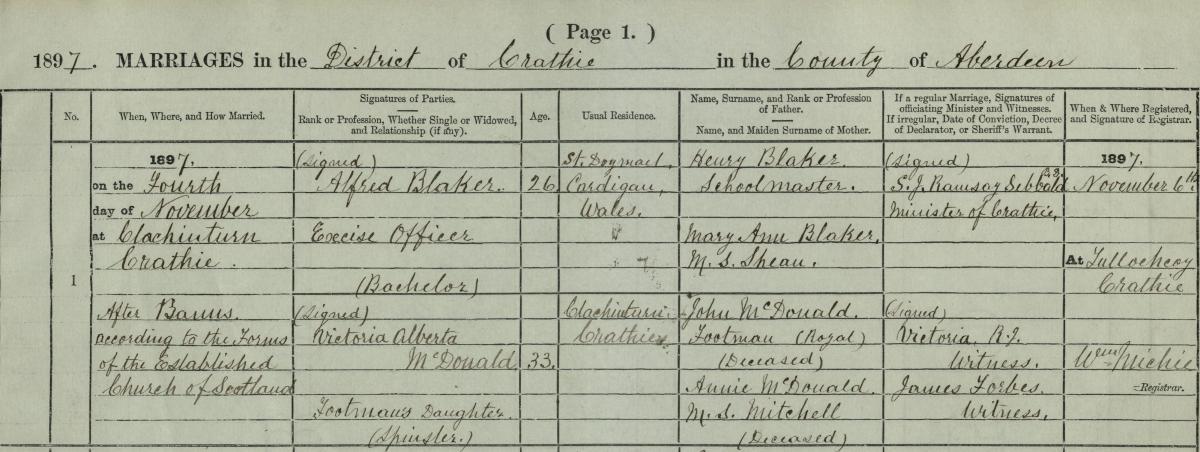 ( Page 1. )
1897. MARRIAGES in the District of Crathie in the County of Aberdeen
No.
When, Where, and How Married.
Signatures of Parties.
Rank or Profession, Whether Single or Widowed,
and Relationship (if any).
Age.
Usual Residence.
Name, Surname, and Rank or Profession
of Father.
Name, and Maiden Surname of Mother.
If a regular Marriage, Signatures of
officiating Minister and Witnesses.
If irregular, Date of Conviction, Decree
of Declarator, or Sheriff's Warrant.
When & Where Registered,
and Signature of Registrar.
1
1897.
on the Fourth
day of November
at Clachinturn
Crathie.
After Banns.
according to the Forms
of the Established
Church of Scotland
(Signed)
Alfred Blaker.
Excise Officer
(Bachelor)
(Signed)
Victoria Alberta
McDonald
Footman's Daughter.
(Spinster.)
26
33.
St. Dogmael,
Cardigan,
Wales.
Clachinturn.
Crathie.
Henry Blaker.
Schoolmaster.
Mary Ann Blaker.
M.S. Shean.
John McDonald.
Footman (Royal)
(Deceased)
Annie McDonald.
M.S. Mitchell
(Deceased)
(Signed)
S.J. Ramsay Sibbald
Minister of Crathie,
(Signed)
Victoria R.I.
Witness.
James Forbes.
Witness.
1897.
November 6th
At Tullochcoy
Crathie
Wm Michie
Registrar.